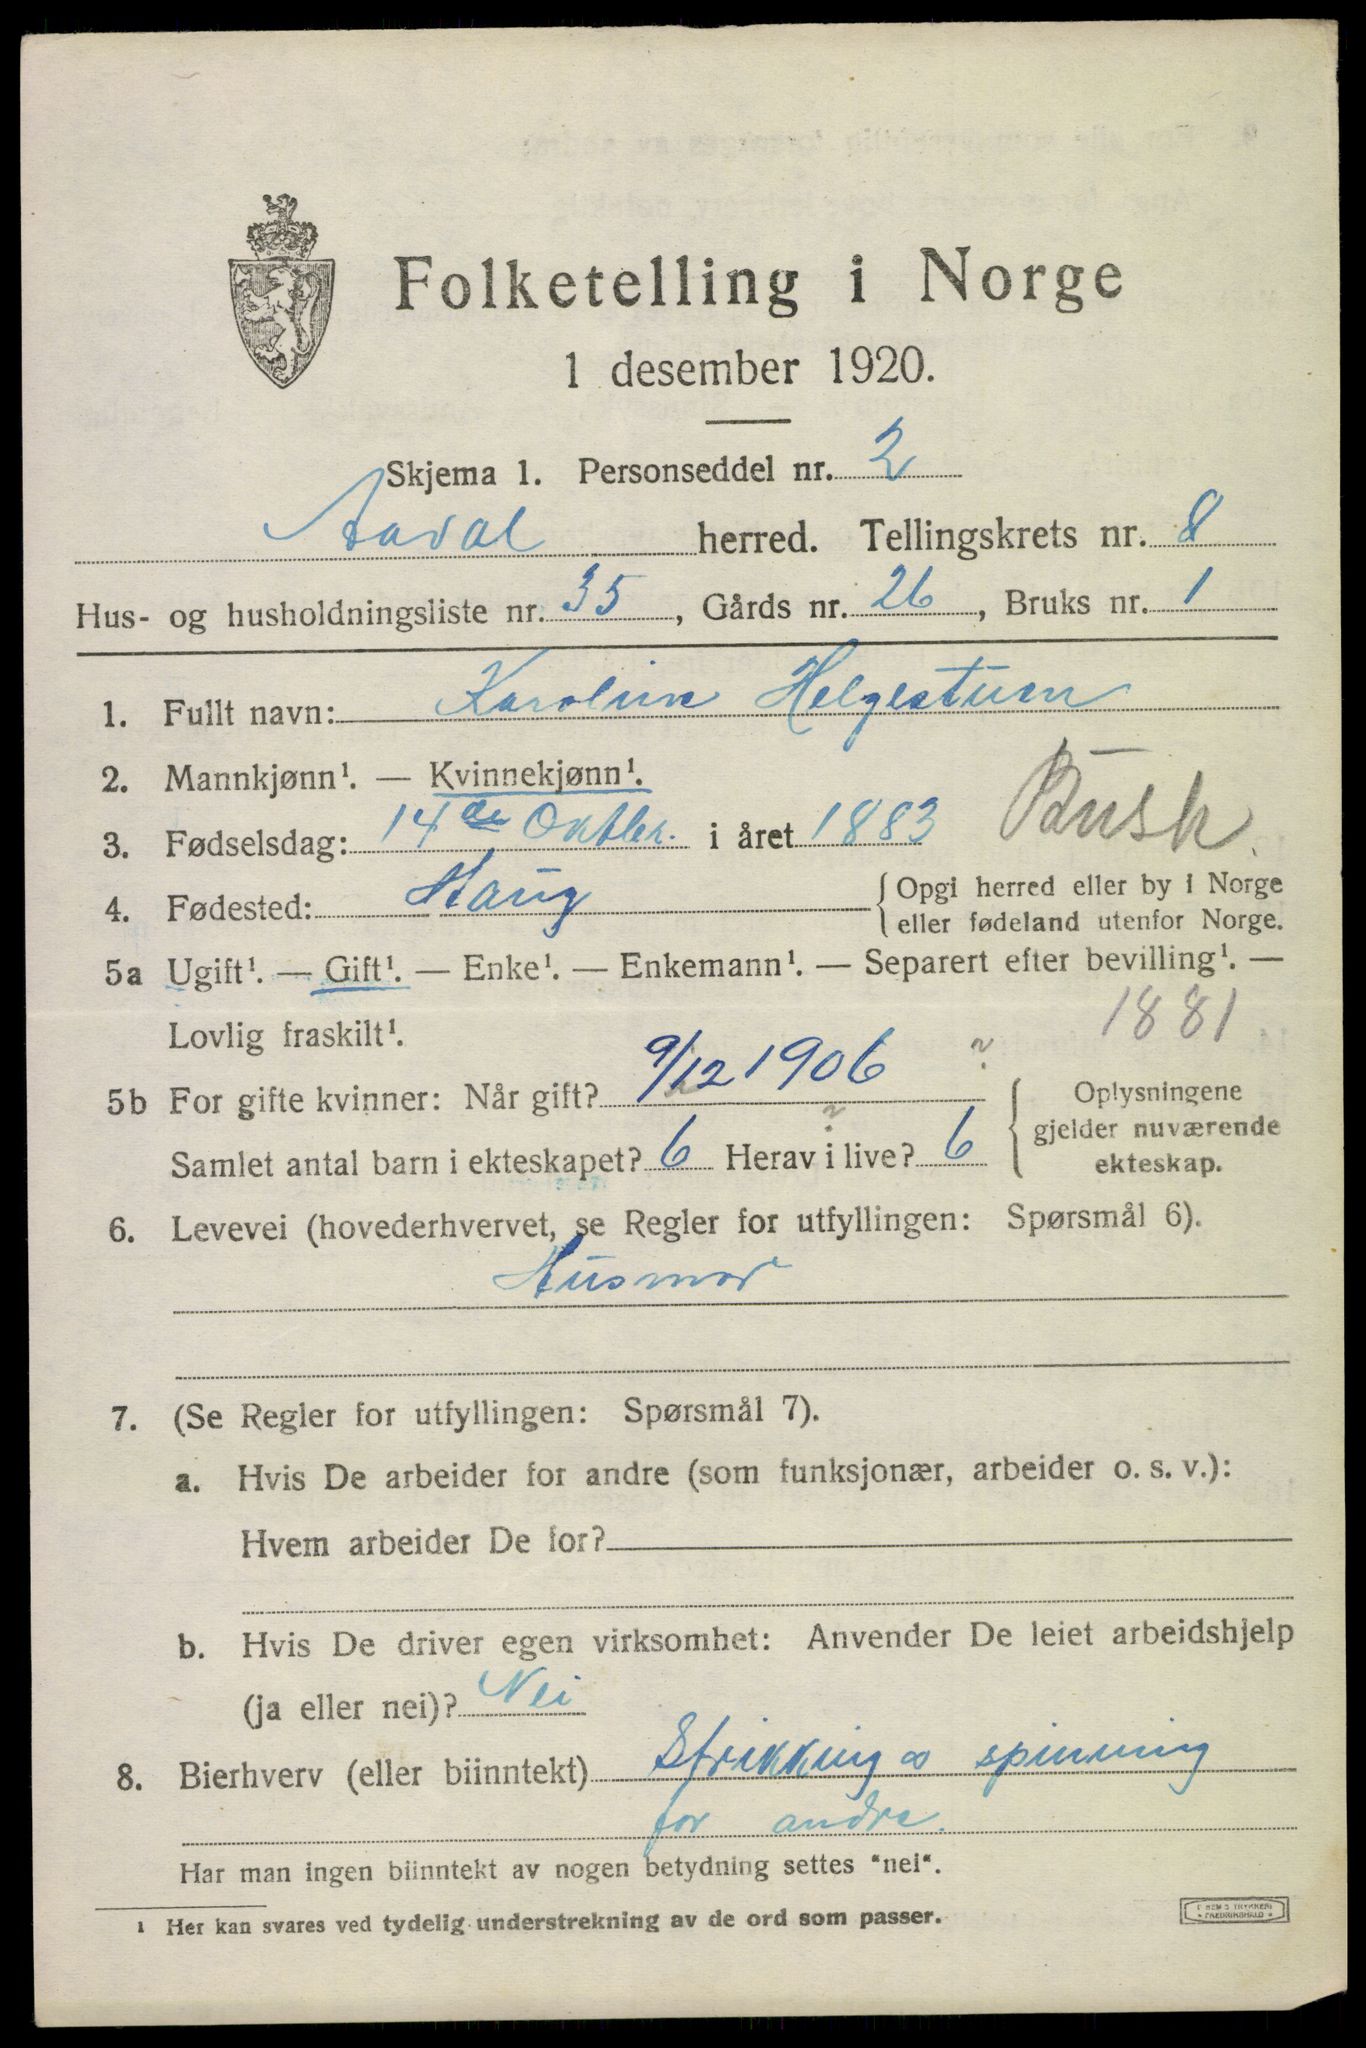 Folketelling i Norge
1 desember 1920.
Skjema 1. Personseddel nr. 2
Aadal herred. Tellingskrets nr. 8
Hus- og husholdningsliste nr. 35, Gårds nr. 26, Bruks nr. 1
1. Fullt navn: Karoline Helgestuen
2. Mannkjønn¹. — Kvinnekjønn¹.
3. Fødselsdag: 14de Oktbr. i året 1883
Busk.
4. Fødested: Haug {Opgi herred eller by i Norge
eller fødeland utenfor Norge.
5a Ugift¹. — Gift¹. — Enke¹. — Enkemann¹. — Separert efter bevilling¹. —
Lovlig fraskilt¹. 1881
5b For gifte kvinner: Når gift? 9/12 1906 ?
Samlet antal barn i ekteskapet? 6 Herav i live? 6 ?
{Oplysningene
gjelder nuværende
ekteskap.
6. Levevei (hovederhvervet, se Regler for utfyllingen: Spørsmål 6).
Husmor
7. (Se Regler for utfyllingen: Spørsmål 7).
a. Hvis De arbeider for andre (som funksjonær, arbeider o. s. v.):
Hvem arbeider De for?
b. Hvis De driver egen virksomhet: Anvender De leiet arbeidshjelp
(ja eller nei)? Nei
8. Bierhverv (eller biinntekt) Strikking o spinning
for andre.
Har man ingen biinntekt av nogen betydning settes "nei".
¹ Her kan svares ved tydelig understrekning av de ord som passer.
TRYKKERI
FREDRIKSHALD